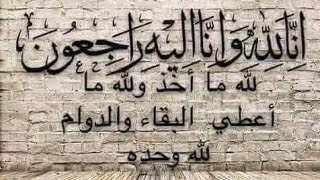 إنا لله وإنا إليه راجعون
لله ما أخذ ولله ما
أعطي البقاء والدوام
لله وحده